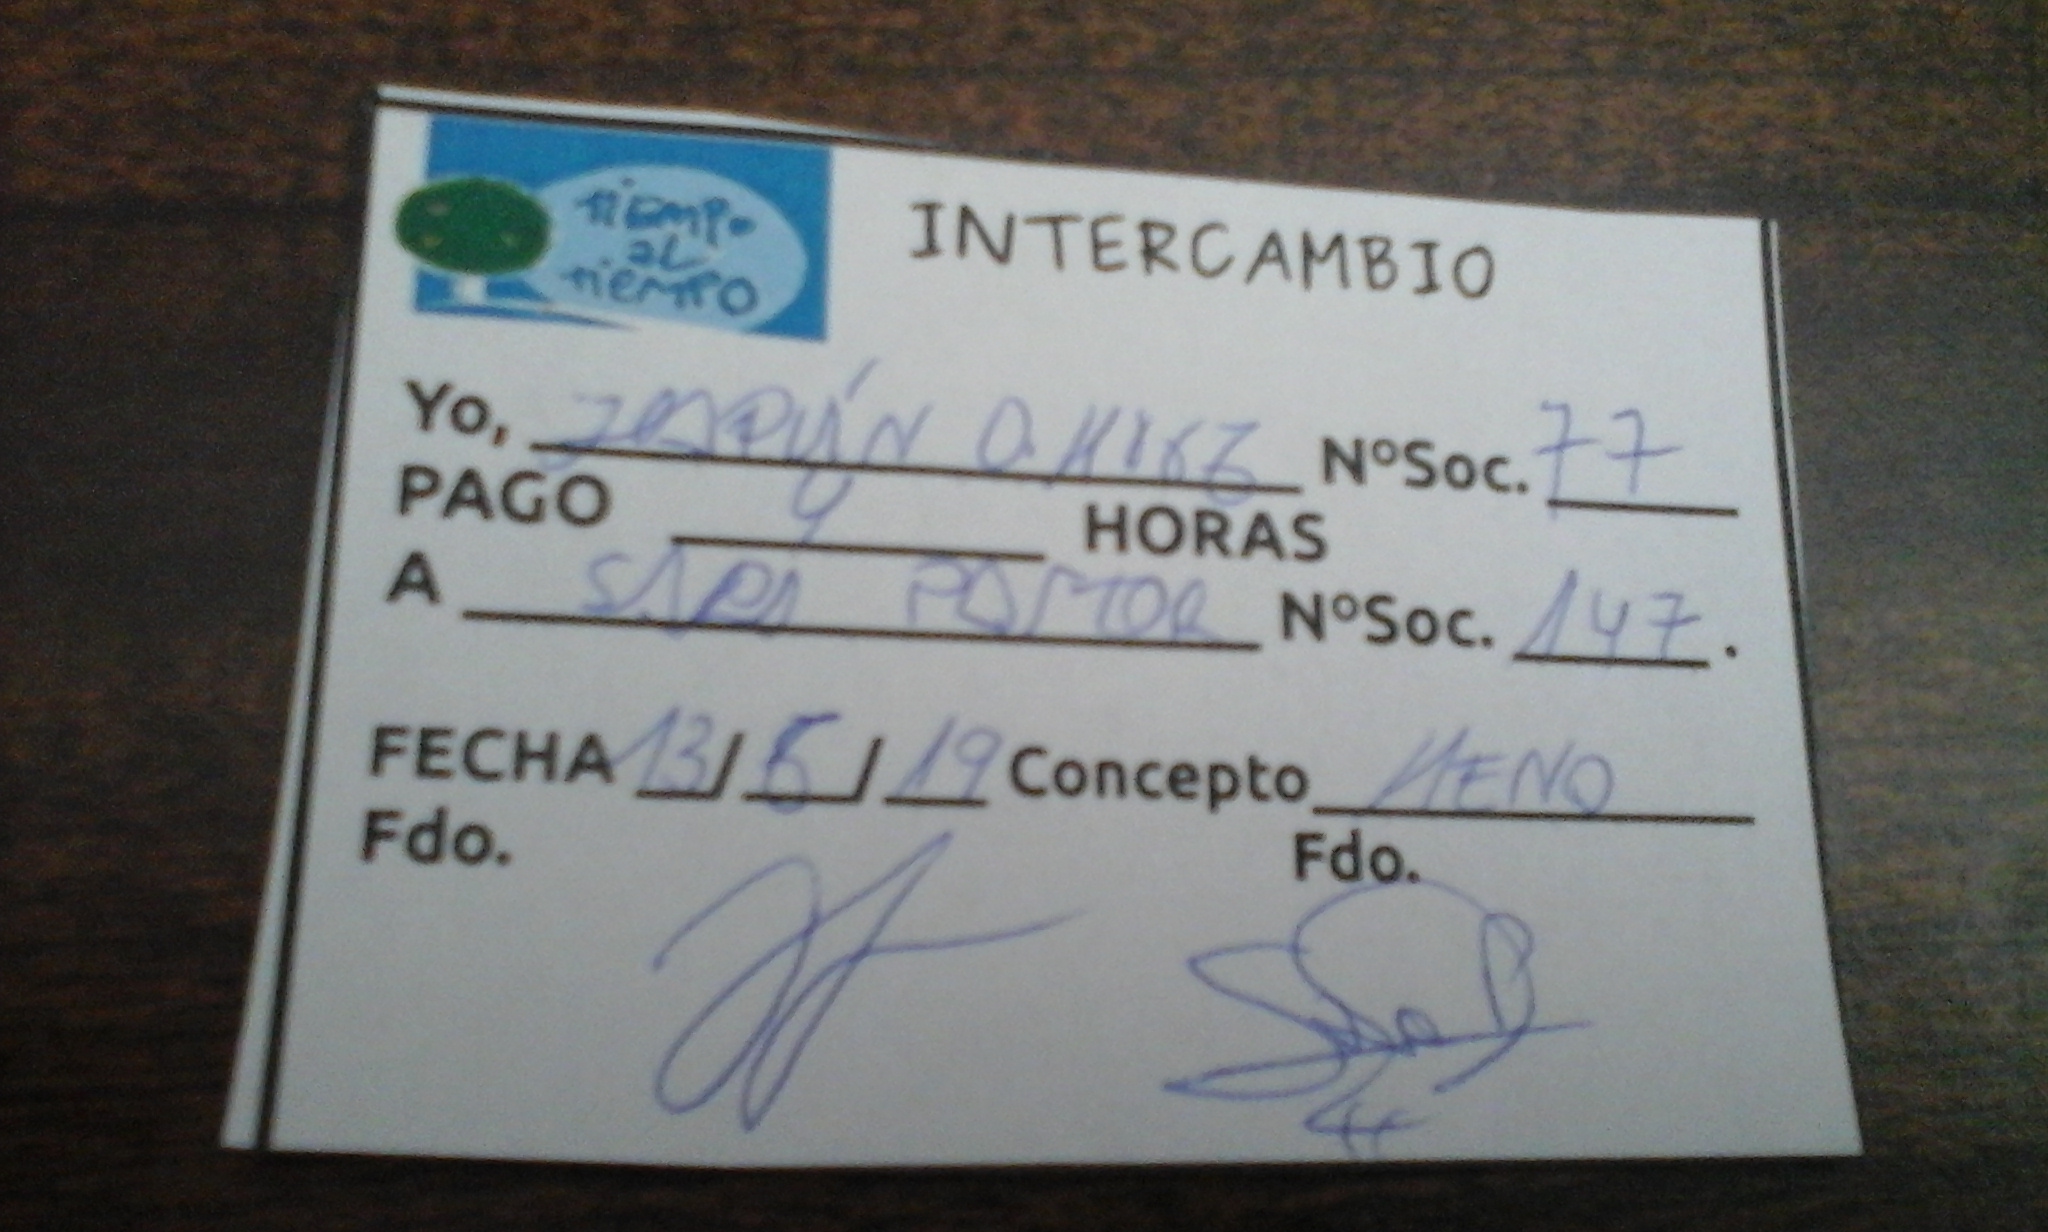 tiempo
al
tiempo
INTERCAMBIO
Yo, JOAQUÍN NºSoc. 77
PAGO HORAS
A SARA PASTOR NºSoc. 147.
FECHA 13/5/19 Concepto HENO
Fdo. Fdo.